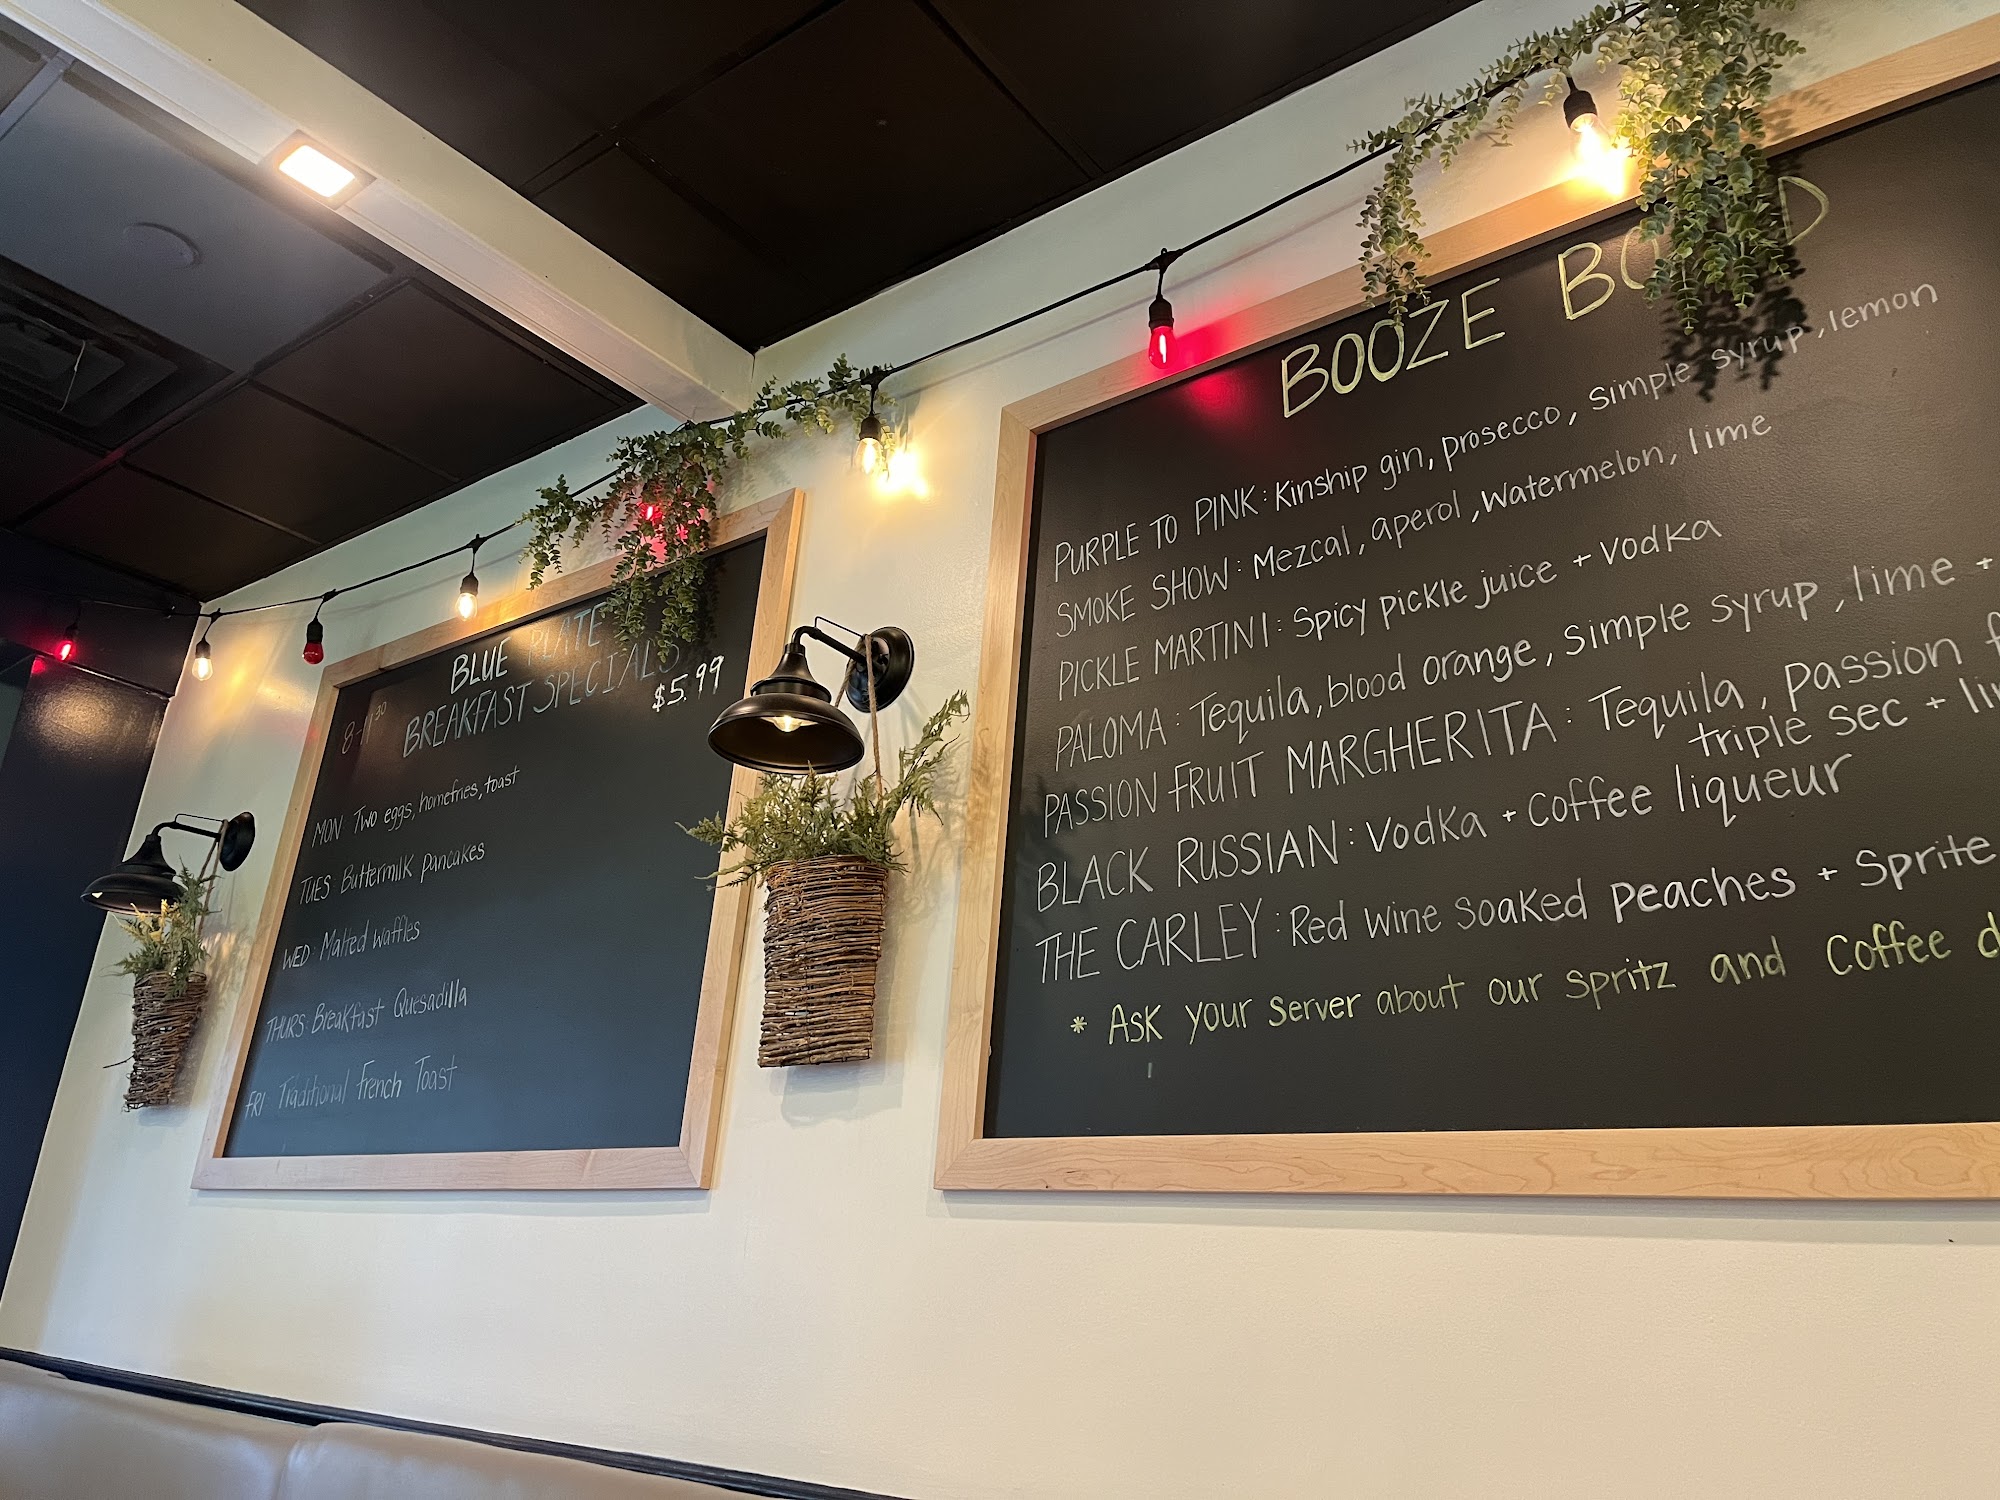 BLUE PLATE
BREAKFAST SPECIALS
8-11:30
$5.99
MON Two eggs, homefries, toast
TUES: Buttermilk pancakes
WED: Malted waffles
THURS: Breakfast Quesadilla
FRI Traditional French Toast
BOOZE
PURPLE TO PINK: Kinship gin, prosecco, simple syrup, lemon
SMOKE SHOW: Mezcal, aperol, watermelon, lime
PICKLE MARTINI: Spicy pickle juice + vodka
PALOMA: Tequila, blood orange, simple syrup, lime +
PASSION FRUIT MARGHERITA: Tequila, passion
triple sec +
BLACK RUSSIAN: Vodka + coffee liqueur
THE CARLEY: Red wine soaked peaches + Sprite
* Ask your server about our spritz and coffee